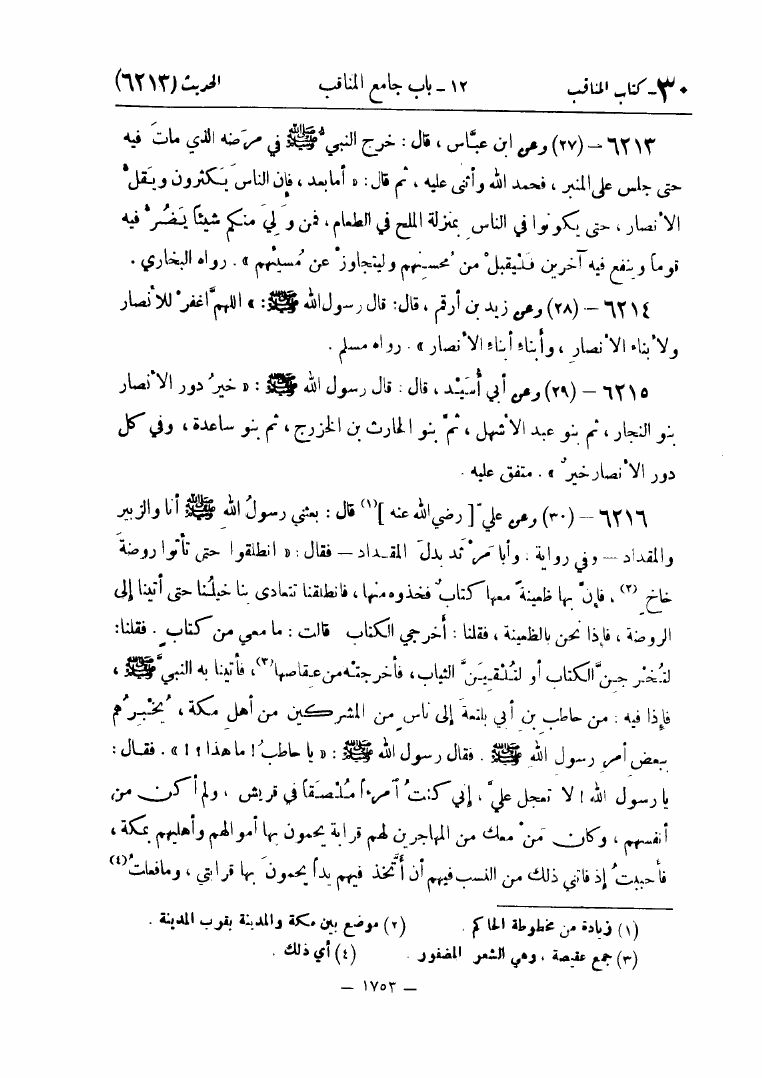 ٣٠ - كتاب المناقب ١٢ - باب جامع المناقب الحديث (٦٢١٣)
٦٢١٣ – (٢٧) وعن ابن عبَّاس ، قال : خرج النبي ﷺ في مرَضه الذي ماتَ فيه
حتى جلس على المنبر ، فحمد الله وأثنى عليه ، ثم قال : « أما بعد ، فإن الناسَ يَكثرون ويَقلُّ
الأنصار ، حتى يكونوا في الناسِ بمنزلة الملح في الطعام ، فمن وَلِيَ منكم شيئاً يَضُرُّ فيه
قوماً وينفع فيه آخرين فلْيقبلْ من مُحسنِهم وليتجاوزْ عن مُسيئهم » . رواه البخاري .
٦٢١٤ – (٢٨) وعن زيد بن أرقم ، قال: قال رسول الله ﷺ: « اللهمَّ اغفرْ للأنصار
ولأبناء الأنصارِ ، وأبناءِ أبناءِ الأنصار » . رواه مسلم .
٦٢١٥ – (٢٩) وعن أبي أُسَيْد ، قال : قال رسول الله ﷺ : « خيرُ دور الأنصار
بنو النجار ، ثم بنو عبد الأشهل ، ثمَّ بنو الحارث بن الخزرج ، ثم بنو ساعدة ، وفي كل
دور الأنصار خيرٌ » . متفق عليه .
٦٢١٦ – (٣٠) وعن عليّ [ رضي الله عنه ](١) قال : بعثني رسولُ اللهِ ﷺ أنا والزبير
والمقداد – وفي رواية : وأبا مَرْثَد بدلَ المقداد – فقال : « انطلقوا حتى تأتوا روضةَ
خاخ (٢) ، فإنَّ بها ظعينةً معها كتابٌ فخذوه منها ، فانطلقنا تتعادى بنا خيلُنا حتى أتينا إلى
الروضة ، فإذا نحن بالظعينة ، فقلنا : أَخرجي الكتاب قالت : ما معي من كتابٍ . فقلنا:
لتُخْرِجِنَّ الكتاب أو لتُلْقِيَنَّ الثياب ، فأخرجتْه من عِقاصها(٣)، فأتينا به النبيَّ ﷺ ،
فإذا فيه : من حاطبِ بنِ أبي بلتعةَ إلى ناسٍ من المشركين من أهلِ مكة ، يُخبرُهم
ببعض أمرِ رسول الله ﷺ . فقال رسول الله ﷺ : « يا حاطبُ ! ما هذا ؟ ! » . فقال :
يا رسول الله ! لا تعجل عليَّ ، إني كنتُ امرءاً مُلْصَقاً في قريش ، ولم أكن من
أنفسهم ، وكان مَنْ معك من المهاجرين لهم قرابة يحمون بها أموالهم وأهليهم بمكة ،
فأحببتُ إذ فاتني ذلك من النسب فيهم أن أتَّخذ فيهم يداً يحمونَ بها قرابتي ، وما فعلتُ(٤)
(١) زيادة من مخطوطة الحاكم . (٢) موضع بين مكة والمدينة بقرب المدينة .
(٣) جمع عقيصة ، وهي الشعر المضفور . (٤) أي ذلك .
– ١٧٥٣ –